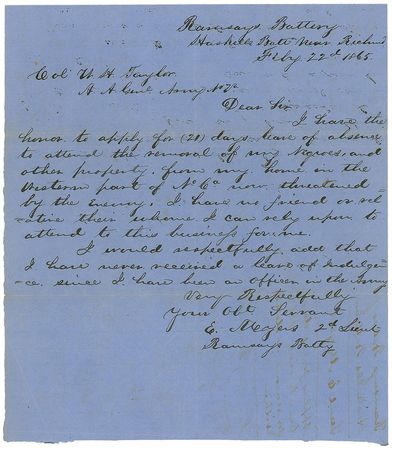 Ramsays Battery
Haskells Batt Near Richmd
Feby 22d 1865
Col W. H. Taylor
A A Genl Army N. Va
Dear Sir
I have the
honor to apply for (20) days leave of absence
to attend the removal of my Negroes, and
other property, from my home in the
Western part of N. Ca now threatened
by the Enemy. I have no friend or rel-
ative their whome I can rely upon to
attend to this business for me.
I would respectfully add that
I have never received a leave of Indulgen-
ce since I have been an officer in the Army
Very Respectfully
Your Obt Servant
E. Moyers 2d Lieut
Ramsays Batty